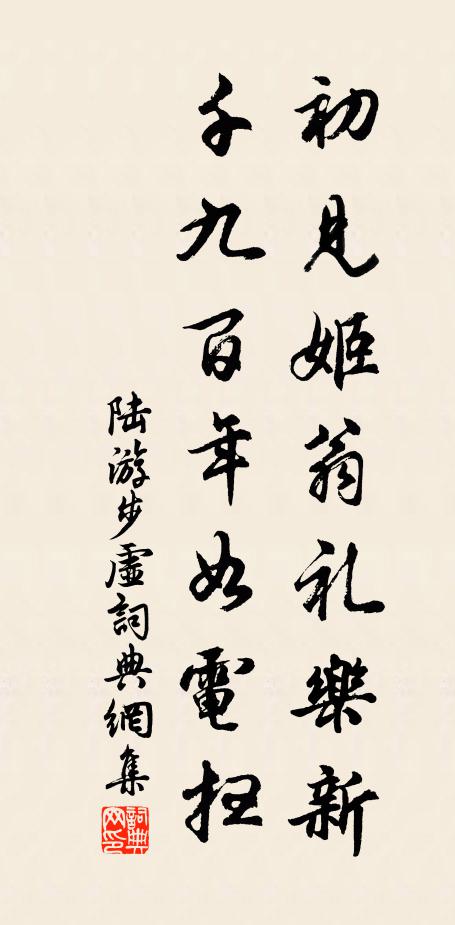 初見姬翁礼樂新
千九百年如電抂
陆游步虛詞典網集
詞典网印